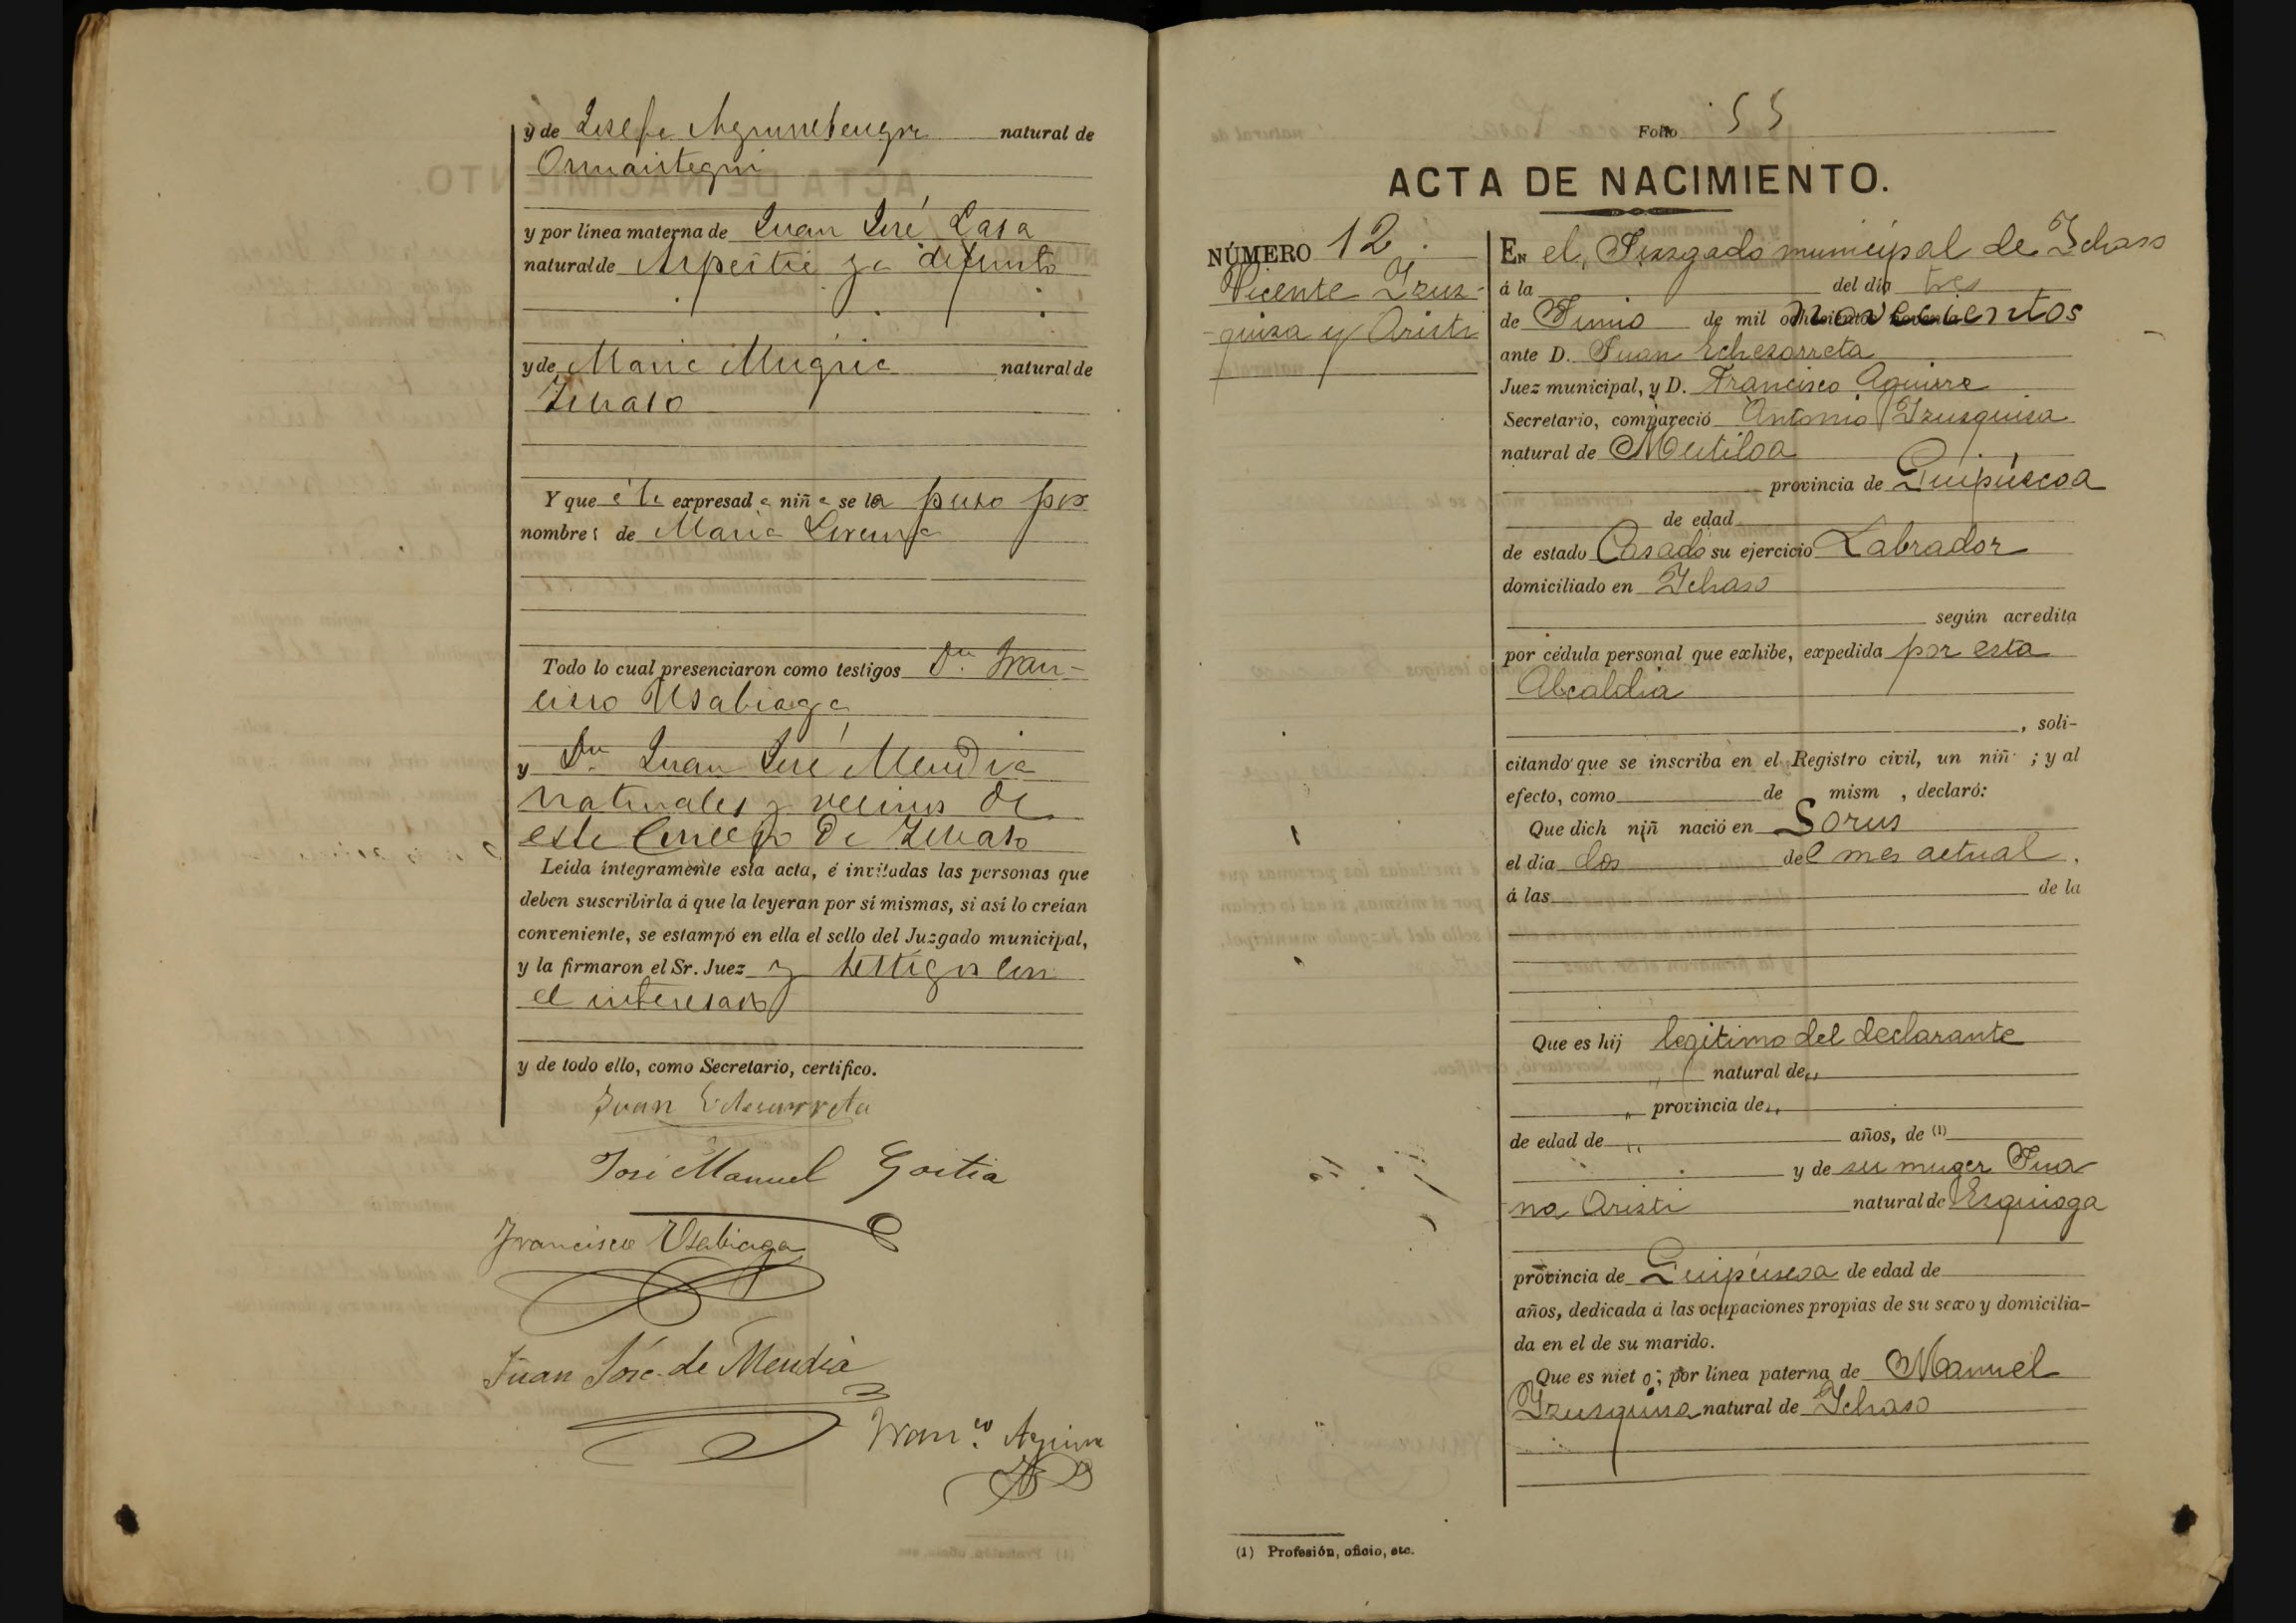 y de Josefa Aguirrebengoa natural de
Ormaiztegui
y por línea materna de Juan José Lasa
natural de Azpeitia ya difunto
y de Maria Mugica natural de
Ichaso
Y que á la expresada niña se la puso por
nombre: de Maria Lorenza
Todo lo cual presenciaron como testigos Dn. Fran-
cisco Usabiaga
y Dn. Juan José Mendia
naturales y vecinos de
este Concejo de Ichaso
Leída íntegramente esta acta, é invitadas las personas que
deben suscribirla á que la leyeran por sí mismas, si así lo creían
conveniente, se estampó en ella el sello del Juzgado municipal,
y la firmaron el Sr. Juez y testigos con
el interesado
y de todo ello, como Secretario, certifico.
Juan Echezarreta
José Manuel Goitia
Francisco Usabiaga
Juan José de Mendia
Franco. Aguirre
Folio 55
ACTA DE NACIMIENTO.
NÚMERO 12.
Vicente Izuz-
-quiza y Aristi
EN el Juzgado municipal de Ichaso
á la del día tres
de Junio de mil novecientos
ante D. Juan Echezarreta
Juez municipal, y D. Francisco Aguirre
Secretario, compareció Antonio Izusquiza
natural de Mutiloa
provincia de Guipúzcoa
de edad
de estado Casado su ejercicio Labrador
domiciliado en Ichaso
según acredita
por cédula personal que exhibe, expedida por esta
Alcaldia
, soli-
citando que se inscriba en el Registro civil, un niñ ; y al
efecto, como de mism , declaró:
Que dich niñ nació en Sorus
el día dos del mes actual.
á las de la
Que es hij legítimo del declarante
„ natural de „
„ provincia de „
de edad de „ años, de (1)
y de su muger Jua
na Aristi natural de Ezquioga
provincia de Guipúscoa de edad de
años, dedicada á las ocupaciones propias de su sexo y domicilia-
da en el de su marido.
Que es nieto; por línea paterna de Manuel
Izusquiza natural de Ichaso
(1) Profesión, oficio, etc.